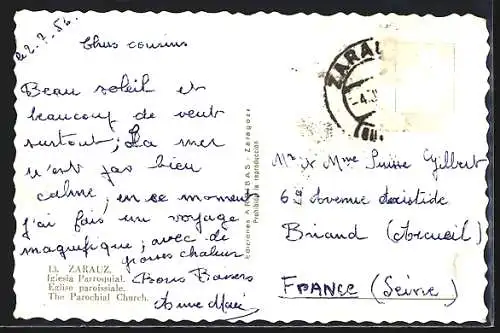 le 2.7.56.
Chers cousins
Beau soleil et
beaucoup de vent
surtout; La mer
n'est pas bien
calme; en ce moment
j'ai fais un voyage
magnifique; avec de
grosses chaleur
Bons Baisers
Anne Marie
13. ZARAUZ.
Iglesia Parroquial.
Eglise paroissiale.
The Parochial Church.
Ediciones ARRIBAS - Zaragoza
Prohibida la reproducción
ZARAU
Mr & Mme Gilbert
6 Avenue Aristide
Briand (Arcueil)
FRANCE (Seine)